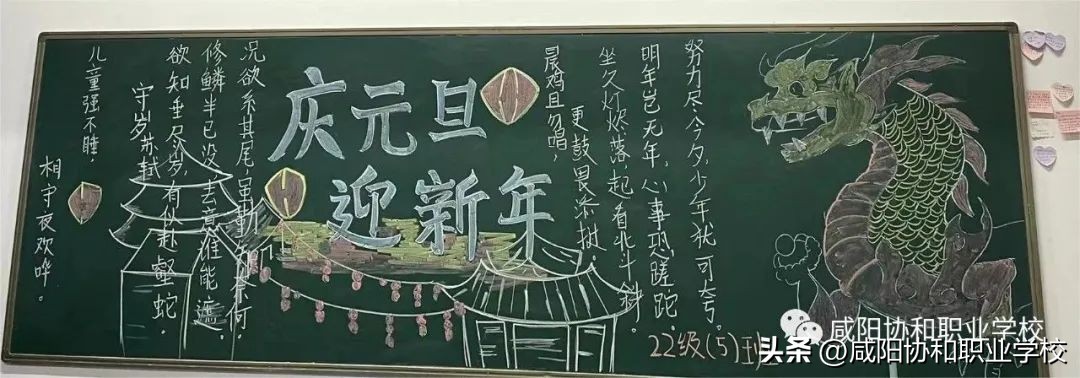 庆元旦
迎新年
守岁 苏轼
欲知垂尽岁,有似赴壑蛇。
修鳞半已没,去意谁能遮。
况欲系其尾,虽勤奈何
儿童强不睡,
相守夜欢哗。
晨鸡且勿唱,
更鼓畏添树。
坐久灯烬落,起看北斗斜。
明年岂无年,心事恐蹉跎。
努力尽今夕,少年犹可夸。
22级(5)班
咸阳协和职业学校
头条 @咸阳协和职业学校